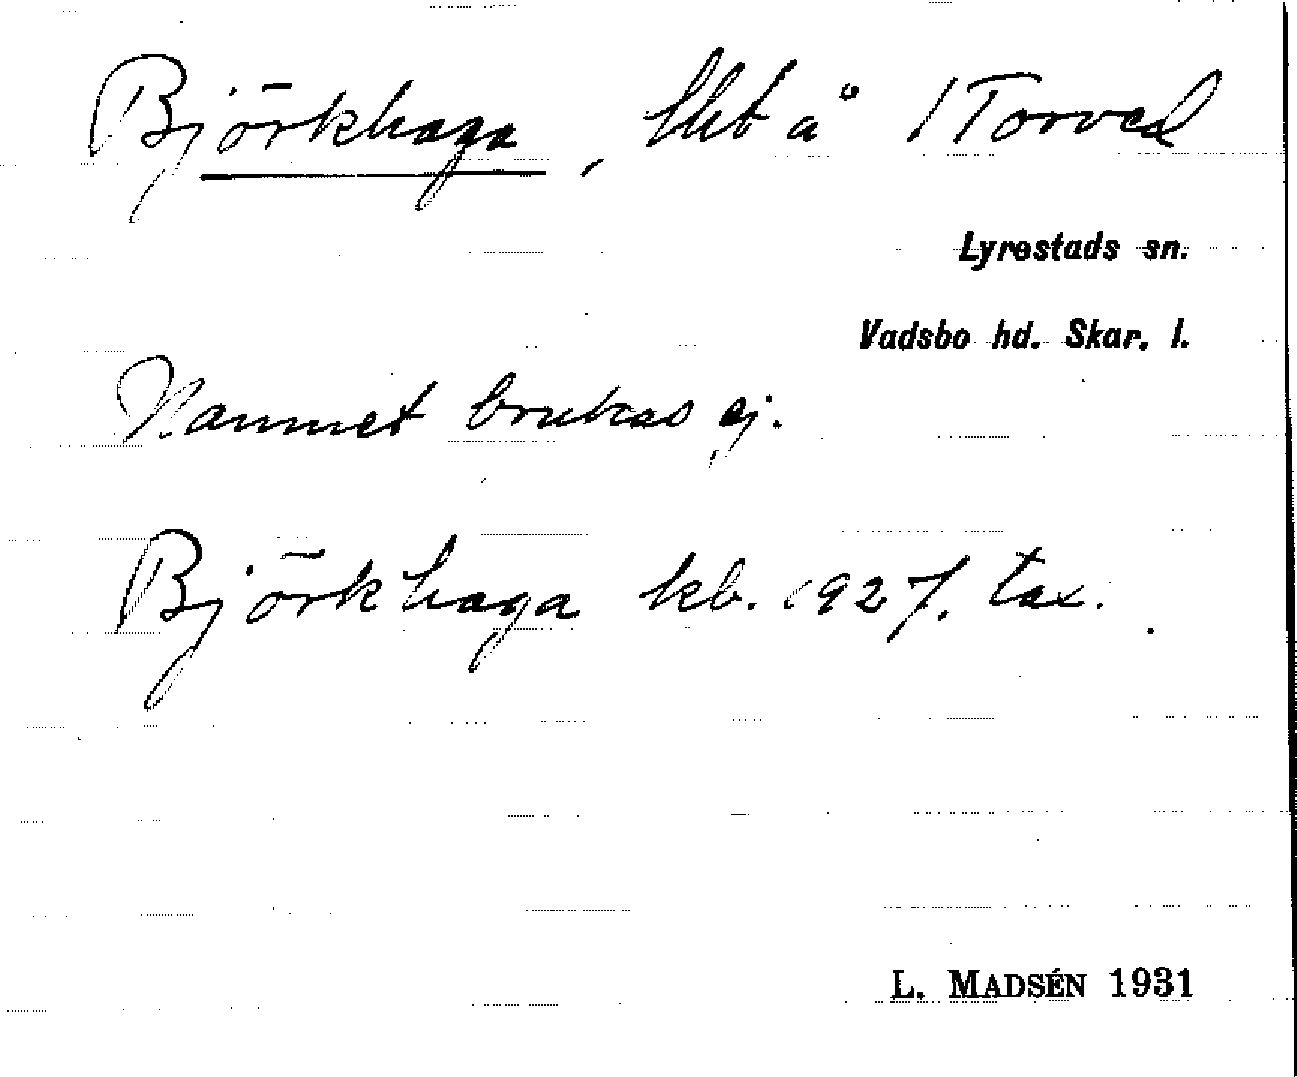 Björkhaga, lht å 1 Torved
Lyrestads sn.
Vadsbo hd. Skar. l.
Namnet brukas ej.
Björkhaga kb. 1927. tax.
L. MADSÉN 1931